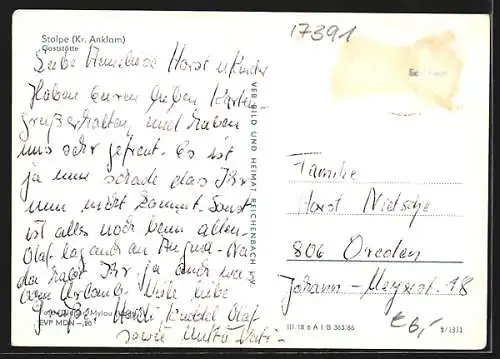 17391
Stolpe (Kr. Anklam)
Gaststätte
Liebe Anneliese Horst u Kinder
Haben Euren lieben Karten-
gruß erhalten, und haben
uns sehr gefreut. Es ist
ja nur schade das Ihr
nun nicht kommt. Sonst
ist alles noch beim alten.
Olaf lag auch an Angina. Na
da habt Ihr ja auch
vom Urlaub. Viele liebe
Grüße. Heidi Olaf
sowie Mutti Vati
EVP MDN -,20
VEB BILD UND HEIMAT REICHENBACH I. V.
Familie
Horst Nietsche
806 Dresden
Johann-Meyerst. 18
III 18 6 A 1 B 363/66
€6,-